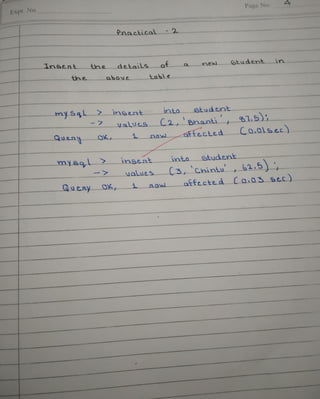 Expt. No.
Page No. 4
Practical - 2
Insert the details of a new student in
the above table
mysql > insert into student
-> values (2, 'Bhanti', 87.5);
Query OK, 1 row affected (0.01sec)
mysql > insert into student
-> values (3, 'Chintu', 62.5);
Query OK, 1 row affected (0.03 sec)